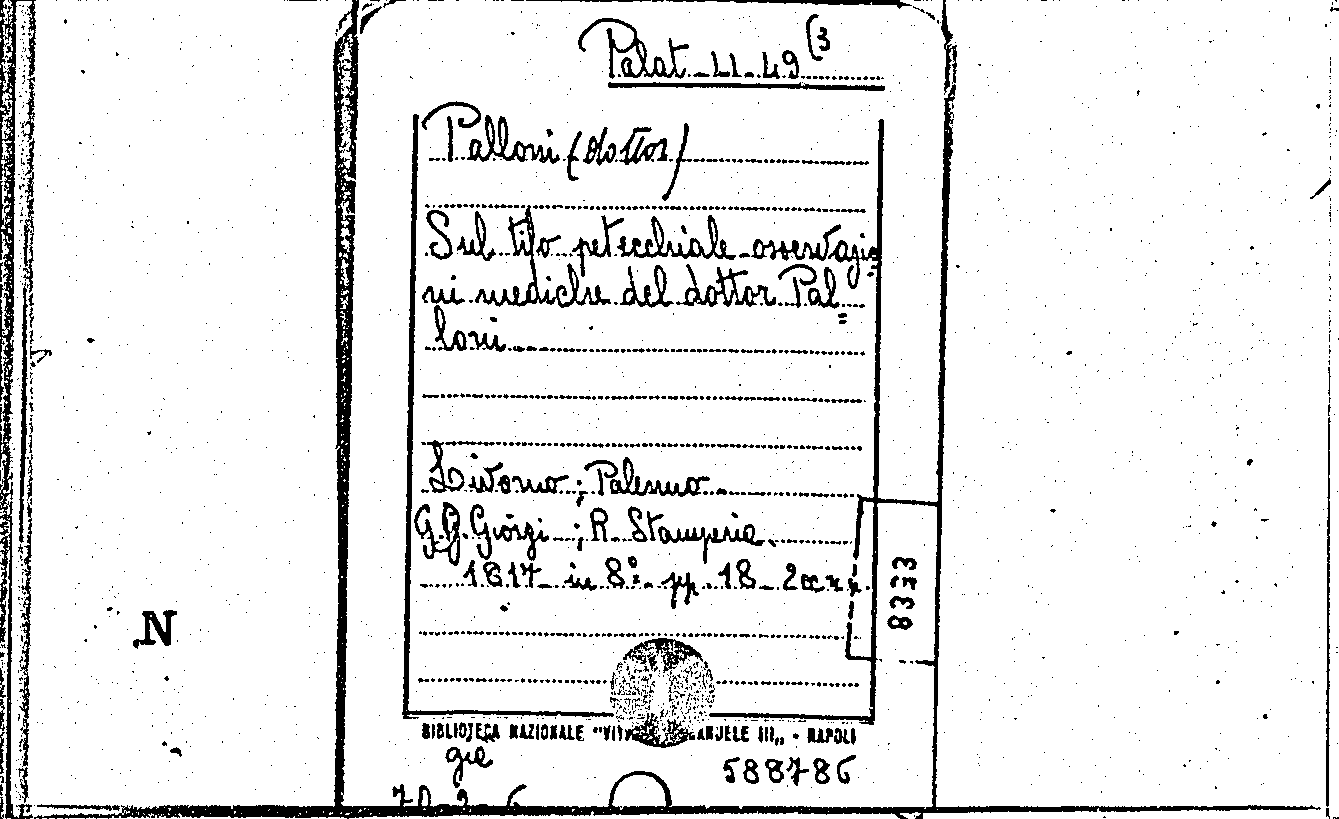 Palat. LI. 49 (3
Palloni (dottor)
Sul tifo petecchiale osservazio=
ni mediche del dottor Pal=
loni.
Livorno; Palermo.
G.B. Giorgi; R. Stamperia.
1817 in 8º pp. 18
8333
N
BIBLIOTECA NAZIONALE "VITTORIO EMANUELE III„ - NAPOLI
gre
588786